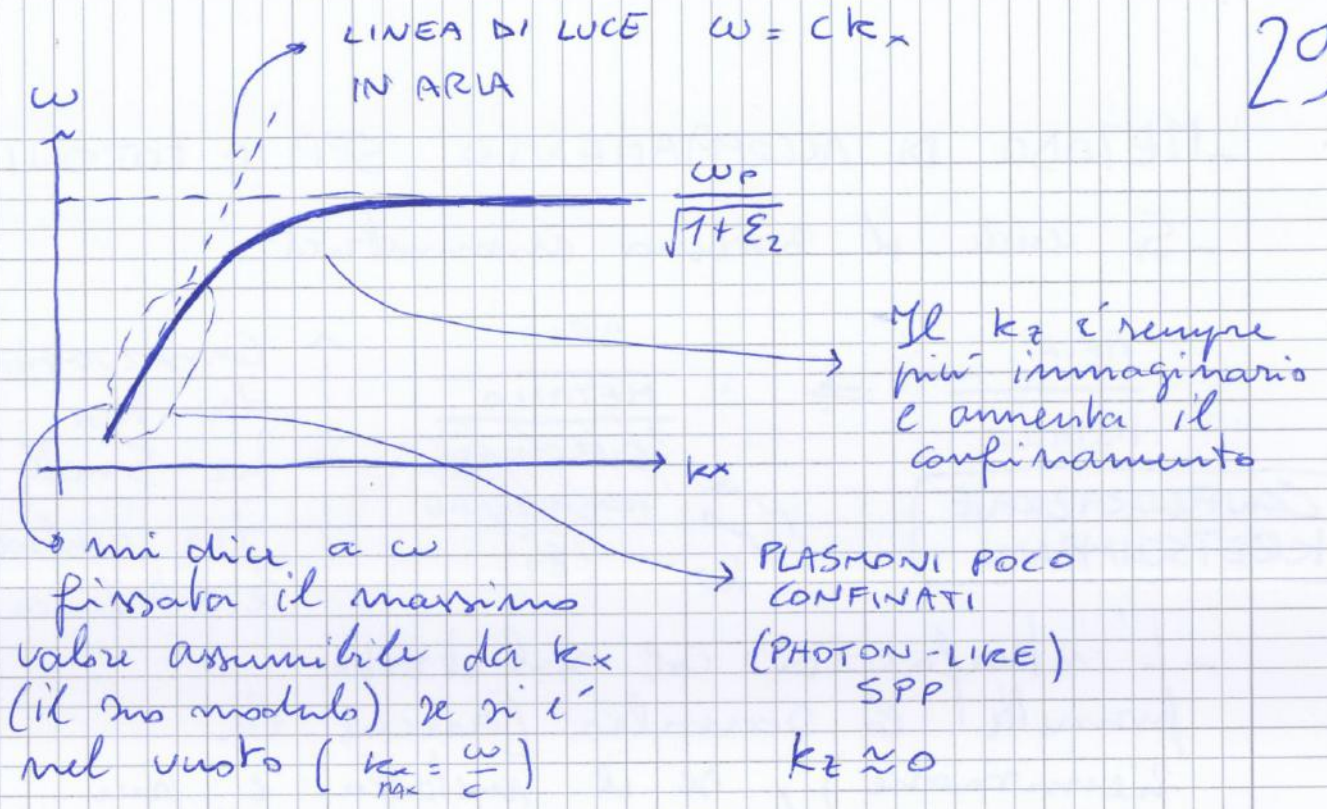 LINEA DI LUCE ω = ckₓ
IN ARIA
29
ω
ωₚ / √(1+ε₂)
Il k_z è sempre
più immaginario
e aumenta il
confinamento
kx
mi dice a ω
fissata il massimo
valore assumibile da kₓ
(il suo modulo) se si è
nel vuoto (kₓ MAX = ω/c)
PLASMONI POCO
CONFINATI
(PHOTON-LIKE)
SPP
k_z ≈ 0